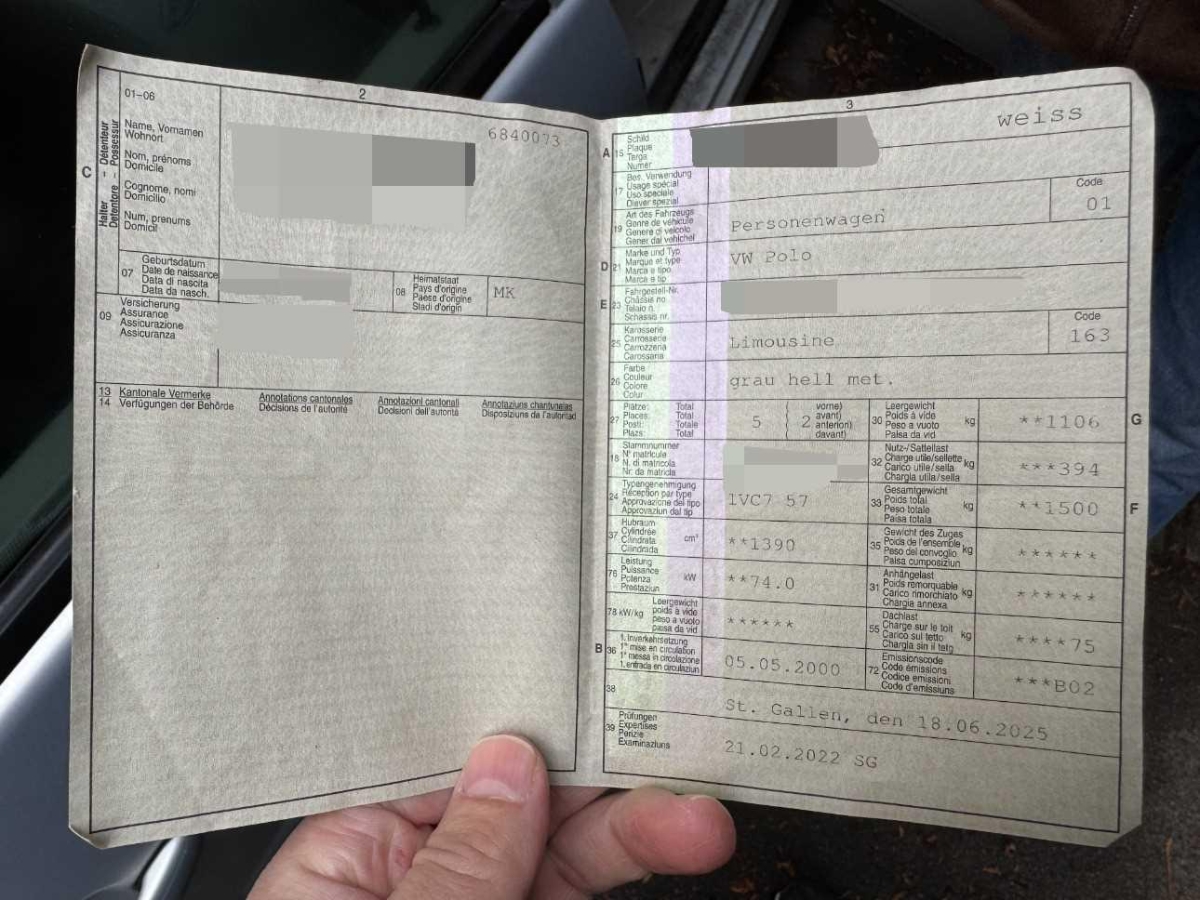 2
01-06
C
Halter - Détenteur
Detentore - Possessur
Name, Vornamen
Wohnort
Nom, prénoms
Domicile
Cognome, nomi
Domicilio
Num, prenums
Domicil
6840073
07
Geburtsdatum
Date de naissance
Data di nascita
Data da nasch.
08
Heimatstaat
Pays d'origine
Paese d'origine
Stadi d'origin
MK
09
Versicherung
Assurance
Assicurazione
Assicuranza
13 Kantonale Vermerke
14 Verfügungen der Behörde
Annotations cantonales
Décisions de l'autorité
Annotazioni cantonali
Decisioni dell'autorità
Annotaziuns chantunalas
Disposiziuns da l'autoritad
3
weiss
A 15
Schild
Plaque
Targa
Numer
17
Bes. Verwendung
Usage spécial
Uso speciale
Diever spezial
19
Art des Fahrzeugs
Genre de véhicule
Genere di veicolo
Gener dal vehichel
Personenwagen
Code
01
D 21
Marke und Typ
Marque et type
Marca e tipo
Marca e tip
VW Polo
E 23
Fahrgestell-Nr.
Châssis no
Telaio n.
Schassis nr.
25
Karosserie
Carrosserie
Carrozzeria
Carossaria
Limousine
Code
163
26
Farbe
Couleur
Colore
Colur
grau hell met.
27
Plätze: Total
Places: Total
Posti: Totale
Plazs: Total
5 2
vorne)
avant)
anteriori)
davant)
30
Leergewicht
Poids à vide
Peso a vuoto
Paisa da vid
kg
**1106
G
18
Stammnummer
N° matricule
N. di matricola
Nr. da matricla
32
Nutz-/Sattellast
Charge utile/sellette
Carico utile/sella
Chargia utila/sella
kg
***394
24
Typengenehmigung
Réception par type
Approvazione del tipo
Approvaziun dal tip
1VC7 57
33
Gesamtgewicht
Poids total
Peso totale
Paisa totala
kg
**1500
F
37
Hubraum
Cylindrée
Cilindrata
Cilindrada
cm³
**1390
35
Gewicht des Zuges
Poids de l'ensemble
Peso del convoglio
Paisa cumposiziun
kg
******
76
Leistung
Puissance
Potenza
Prestaziun
kW
**74.0
31
Anhängelast
Poids remorquable
Carico rimorchiato
Chargia annexa
kg
******
78 kW/kg
Leergewicht
poids à vide
peso a vuoto
paisa da vid
******
55
Dachlast
Charge sur le toit
Carico sul tetto
Chargia sin il tetg
kg
****75
B 36
1. Inverkehrsetzung
1re mise en circulation
1a messa in circolazione
1. entrada en circulaziun
05.05.2000
72
Emissionscode
Code émissions
Codice emissioni
Code d'emissiuns
***B02
38
St. Gallen, den 18.06.2025
39
Prüfungen
Expertises
Perizie
Examinaziuns
21.02.2022 SG